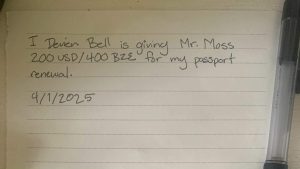 I Devin Bell is giving Mr. Moss
200 USD/400 BZE for my passport
renewal.
4/1/2025